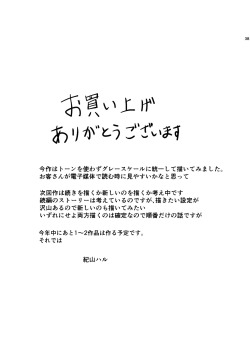 お買い上げ
ありがとうございます
今作はトーンを使わずグレースケールに統一して描いてみました。
お客さんが電子媒体で読む時に見やすいかなと思って
次回作は続きを描くか新しいのを描くか考え中です
続編のストーリーは考えているのですが、描きたい設定が
沢山あるので新しいのも描いてみたい
いずれにせよ両方描くのは確定なので順番だけの話ですが
今年中にあと1〜2作品は作る予定です。
それでは
紀山ハル